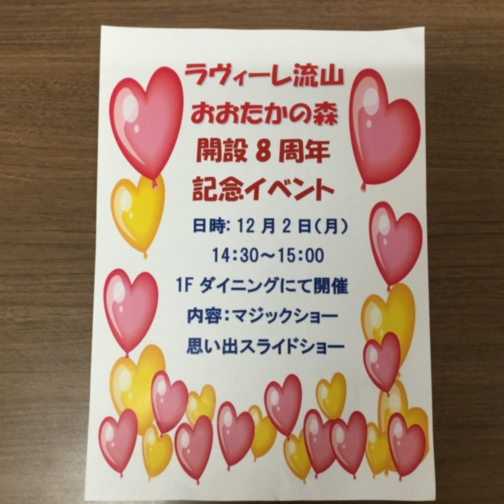 ラヴィーレ流山
おおたかの森
開設8周年
記念イベント
日時:12月2日(月)
14:30～15:00
1Fダイニングにて開催
内容:マジックショー
思い出スライドショー